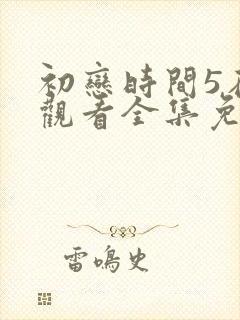 初戀時間5
觀看全集免
雷鳴史